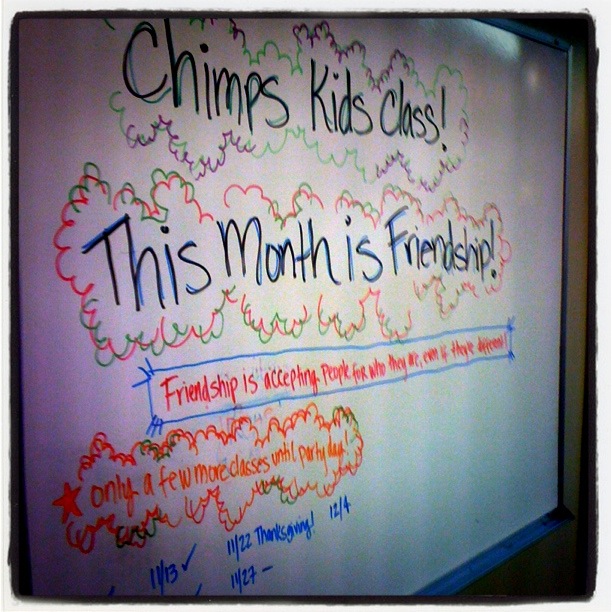 Chimps Kids Class!
This Month is Friendship!
Friendship is accepting People for who they are, even if they're different!
only a few more classes until party day!
11/13 ✓ 11/22 Thanksgiving! 12/4
11/27 -